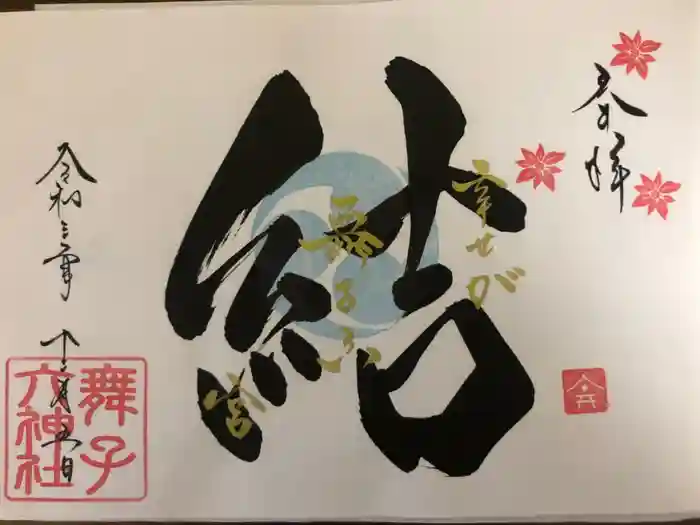 奉拝
幸せが
舞子ふ
宮
結
令和三年 十一月五日
舞子
六神社